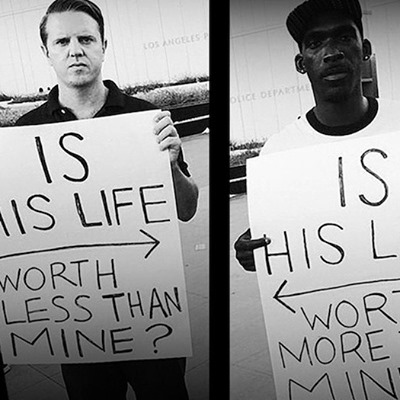 LOS ANGELES P
IS
HIS LIFE
WORTH
LESS THAN
MINE?
OLICE DEPARTME
IS
HIS L
WORT
MORE
MIN